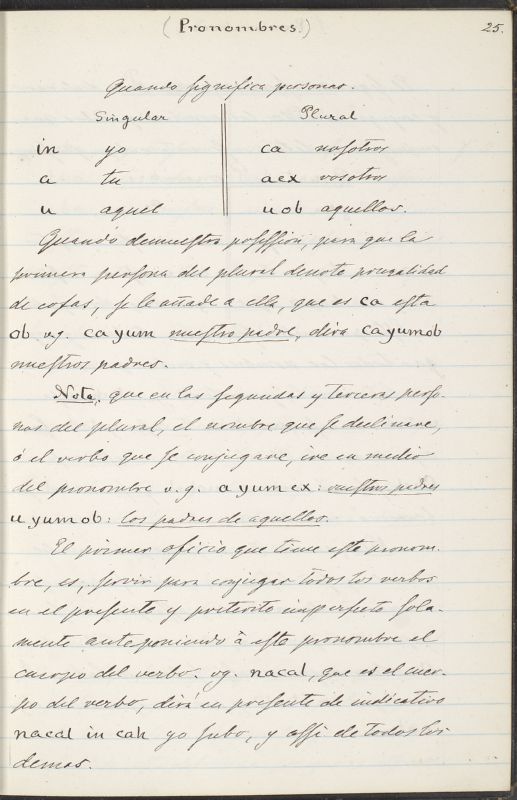 (Pronombres.) 25.
Quando significa personas.
Singular Plural
in yo ca nosotros
a tu aex vosotros
u aquel uob aquellos.
Quando demuestra possession, para que la
primera persona del plural denote pruralidad
de cosas, se le añade a ella, que es ca esta
ob, v.g. ca yum nuestro padre, dira ca yumob
nuestros padres.
Nota, que en las segundas y terceras perso-
nas del plural, el nombre que se declinare,
ó el verbo que se conjugare, ira en medio
del pronombre v.g. a yum ex: vuestros padres
u yumob: los padres de aquellos.
El primer oficio que tiene este pronom-
bre, es, servir para conjugar todos los verbos
en el presente y preterito imperfeto sola-
mente anteponiendo à este pronombre el
cuerpo del verbo. vg. nacal, que es el cuer-
po del verbo, dirá en presente de indicativo
nacal in cah yo subo, y assi de todos los
demas.